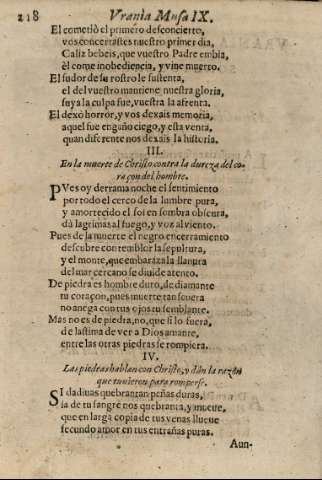 218 Vrania Musa IX.
El cometiò el primero desconcierto,
vos concertastes nuestro primer dia,
Caliz bebeis, que vuestro Padre embia,
èl come inobediencia, y vine muerto.
El sudor de su rostro le sustenta,
el del vuestro mantiene nuestra gloria,
suya la culpa fue, vuestra la afrenta.
El dexò horror, y vos dexais memoria,
aquel fue engaño ciego, y esta venta,
quan diferente nos dexais la historia.
III.
En la muerte de Christo contra la dureza del co-
raçon del hombre.
PVes oy derrama noche el sentimiento
por todo el cerco de la lumbre pura,
y amortecido el sol en sombra obscura,
dà lagrimas al fuego, y voz al viento.
Pues de la muerte el negro encerramiento
descubre con temblor la sepultura,
y el monte, que embaraza la llanura
del mar cercano se diuide atento.
De piedra es hombre duro, de diamante
tu coraçon, pues muerte tan seuera
no anega con tus ojos tu semblante.
Mas no es de piedra, no, que si lo fuera,
de lastima de ver a Dios amante,
entre las otras piedras se rompiera.
IV.
Las piedras hablan con Christo, y dàn la razòn
que tuuieron para romperse.
SI dadiuas quebrantan peñas duras,
la de tu sangre nos quebranta, y mueue,
que en larga copia de tus venas llueue
fecundo amor en tus entrañas puras.
Aun-